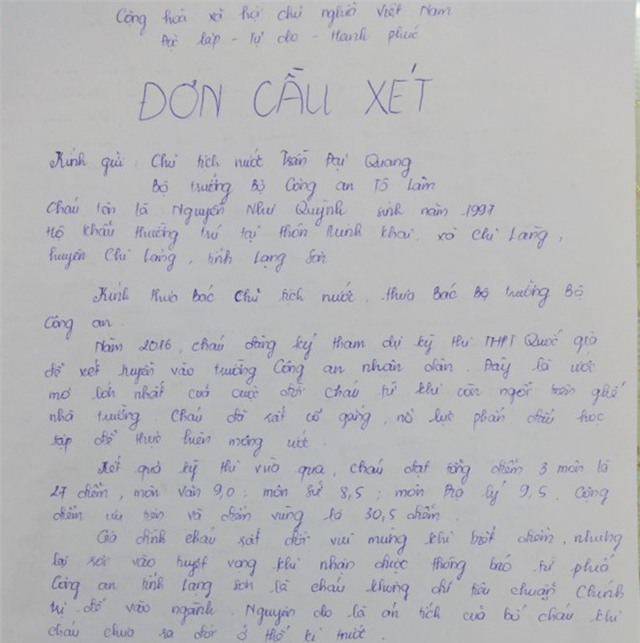 Cộng hoà xã hội chủ nghĩa Việt Nam
Độc lập - Tự do - Hạnh phúc
ĐƠN CẦU XÉT
Kính gửi: Chủ tịch nước Trần Đại Quang
Bộ trưởng Bộ Công an Tô Lâm
Cháu tên là Nguyễn Như Quỳnh sinh năm 1997
Hộ khẩu thường trú tại thôn Minh Khai, xã Chi Lăng,
huyện Chi Lăng, tỉnh Lạng Sơn
Kính thưa Bác Chủ tịch nước, thưa Bác Bộ trưởng Bộ
Công an.
Năm 2016, cháu đăng ký tham dự kỳ thi THPT Quốc gia
để xét tuyển vào trường Công an nhân dân. Đây là ước
mơ lớn nhất của cuộc đời cháu từ khi còn ngồi trên ghế
nhà trường. Cháu đã rất cố gắng, nỗ lực phấn đấu học
tập để thực hiện mong ước.
Kết quả kỳ thi vừa qua, cháu đạt tổng điểm 3 môn là
27 điểm, môn Văn 9,0; môn Sử 8,5; môn Địa lý 9,5. Cộng
điểm ưu tiên và điểm vùng là 30,5 điểm.
Gia đình cháu rất đỗi vui mừng khi biết điểm, nhưng
lại rơi vào tuyệt vọng khi nhận được thông báo từ phía
Công an tỉnh Lạng Sơn là cháu không đủ tiêu chuẩn Chính
trị để vào ngành. Nguyên do là án tích của bố cháu khi
cháu chưa ra đời ở thế kỉ trước.